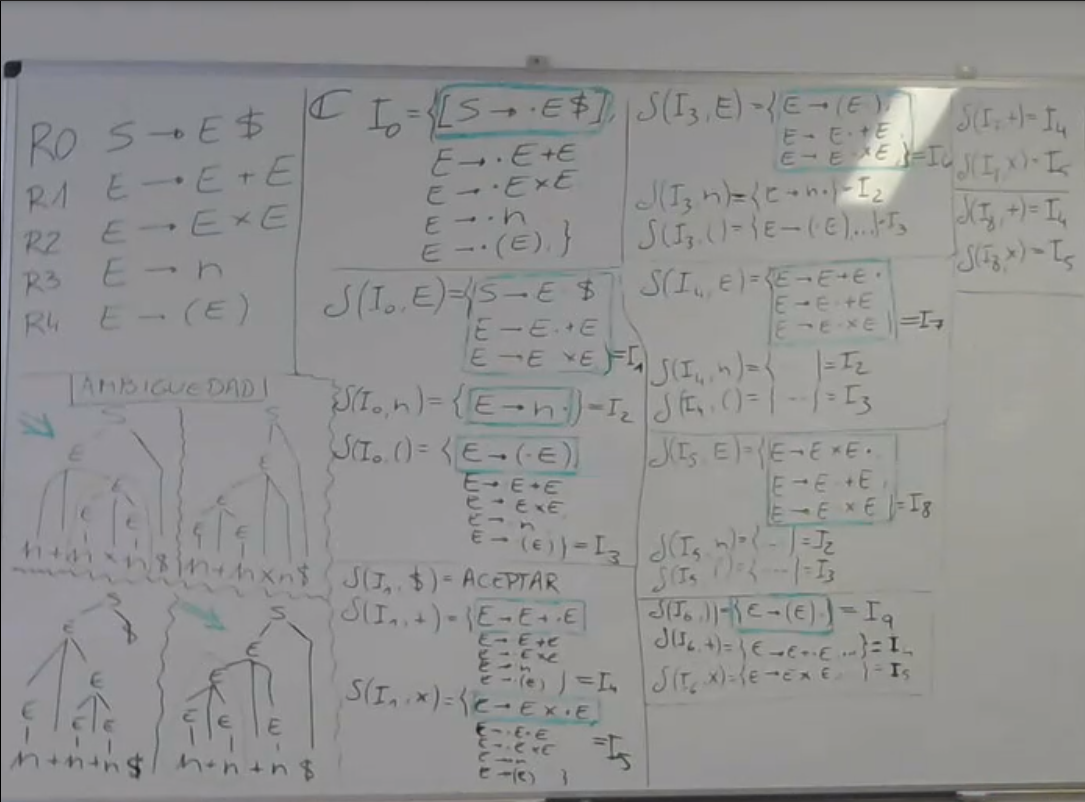 R0 S → E $
R1 E → E + E
R2 E → E × E
R3 E → n
R4 E → (E)
AMBIGUEDAD
S S
E E
E E
E E E E
n + n × n $ n + n × n $
S S
E $ E
E E E
E E E E E
n + n + n $ n + n + n $
I₀ = {[S → · E $],
E → · E + E
E → · E × E
E → · n
E → · (E). }
S(I₀, E) = {S → E $
E → E · + E
E → E × E } = I₁
S(I₀, n) = { E → n · } = I₂
S(I₀, () = { E → (· E)
E → E + E
E → E × E
E → n
E → (E) } = I₃
S(I₁, $) = ACEPTAR
S(I₁, +) = { E → E + · E
E → E + E
E → E × E
E → n
E → · (E) } = I₄
S(I₁, ×) = { E → E × · E
E → · E · E
E → · E × E
E → n
E → (E) } = I₅
S(I₃, E) = { E → (E ·)
E → E · + E
E → E · × E } = I₆
S(I₃, n) = { E → n · } = I₂
S(I₃, () = { E → (· E) ... } = I₃
S(I₄, E) = { E → E + E ·
E → E · + E
E → E · × E } = I₇
S(I₄, n) = { } = I₂
S(I₄, () = { ... } = I₃
S(I₅, E) = { E → E × E ·
E → E · + E
E → E × E } = I₈
S(I₅, n) = { .. } = I₂
S(I₅, () = { ... } = I₃
S(I₆, )) = { E → (E) · } = I₉
S(I₆, +) = { E → E + · E ... } = I₄
S(I₆, ×) = { E → E × E } = I₅
S(I₇, +) = I₄
S(I₇, ×) = I₅
S(I₈, +) = I₄
S(I₈, ×) = I₅